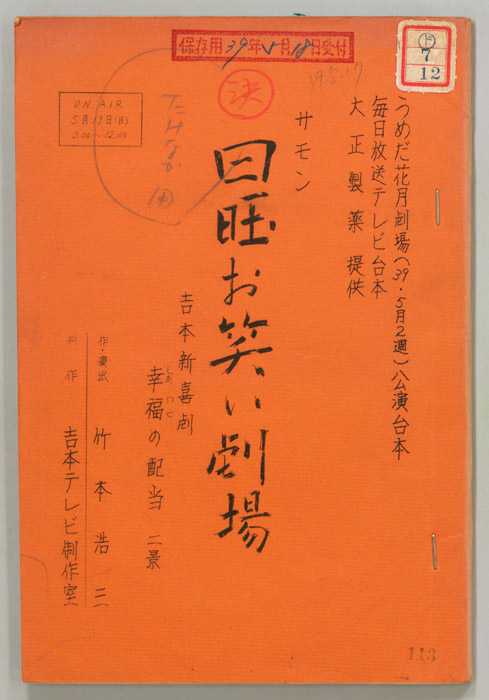 保存用39年5月18日受付
7
12
39.5.17
決
ON AIR
5月17日(日)
うめだ花月劇場(39・5月2週)公演台本
毎日放送テレビ台本
大正製薬 提供
サモン
日曜お笑い劇場
吉本新喜劇
しあわせ
幸福の配当 二景
作・演出 竹本浩三
制作 吉本テレビ制作室
113